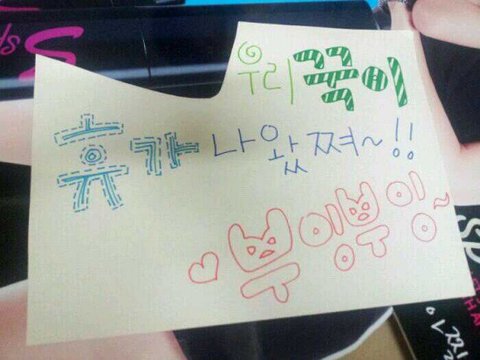 우리꾹이
휴가 나왔쪄~!!
♡뿌잉뿌잉~